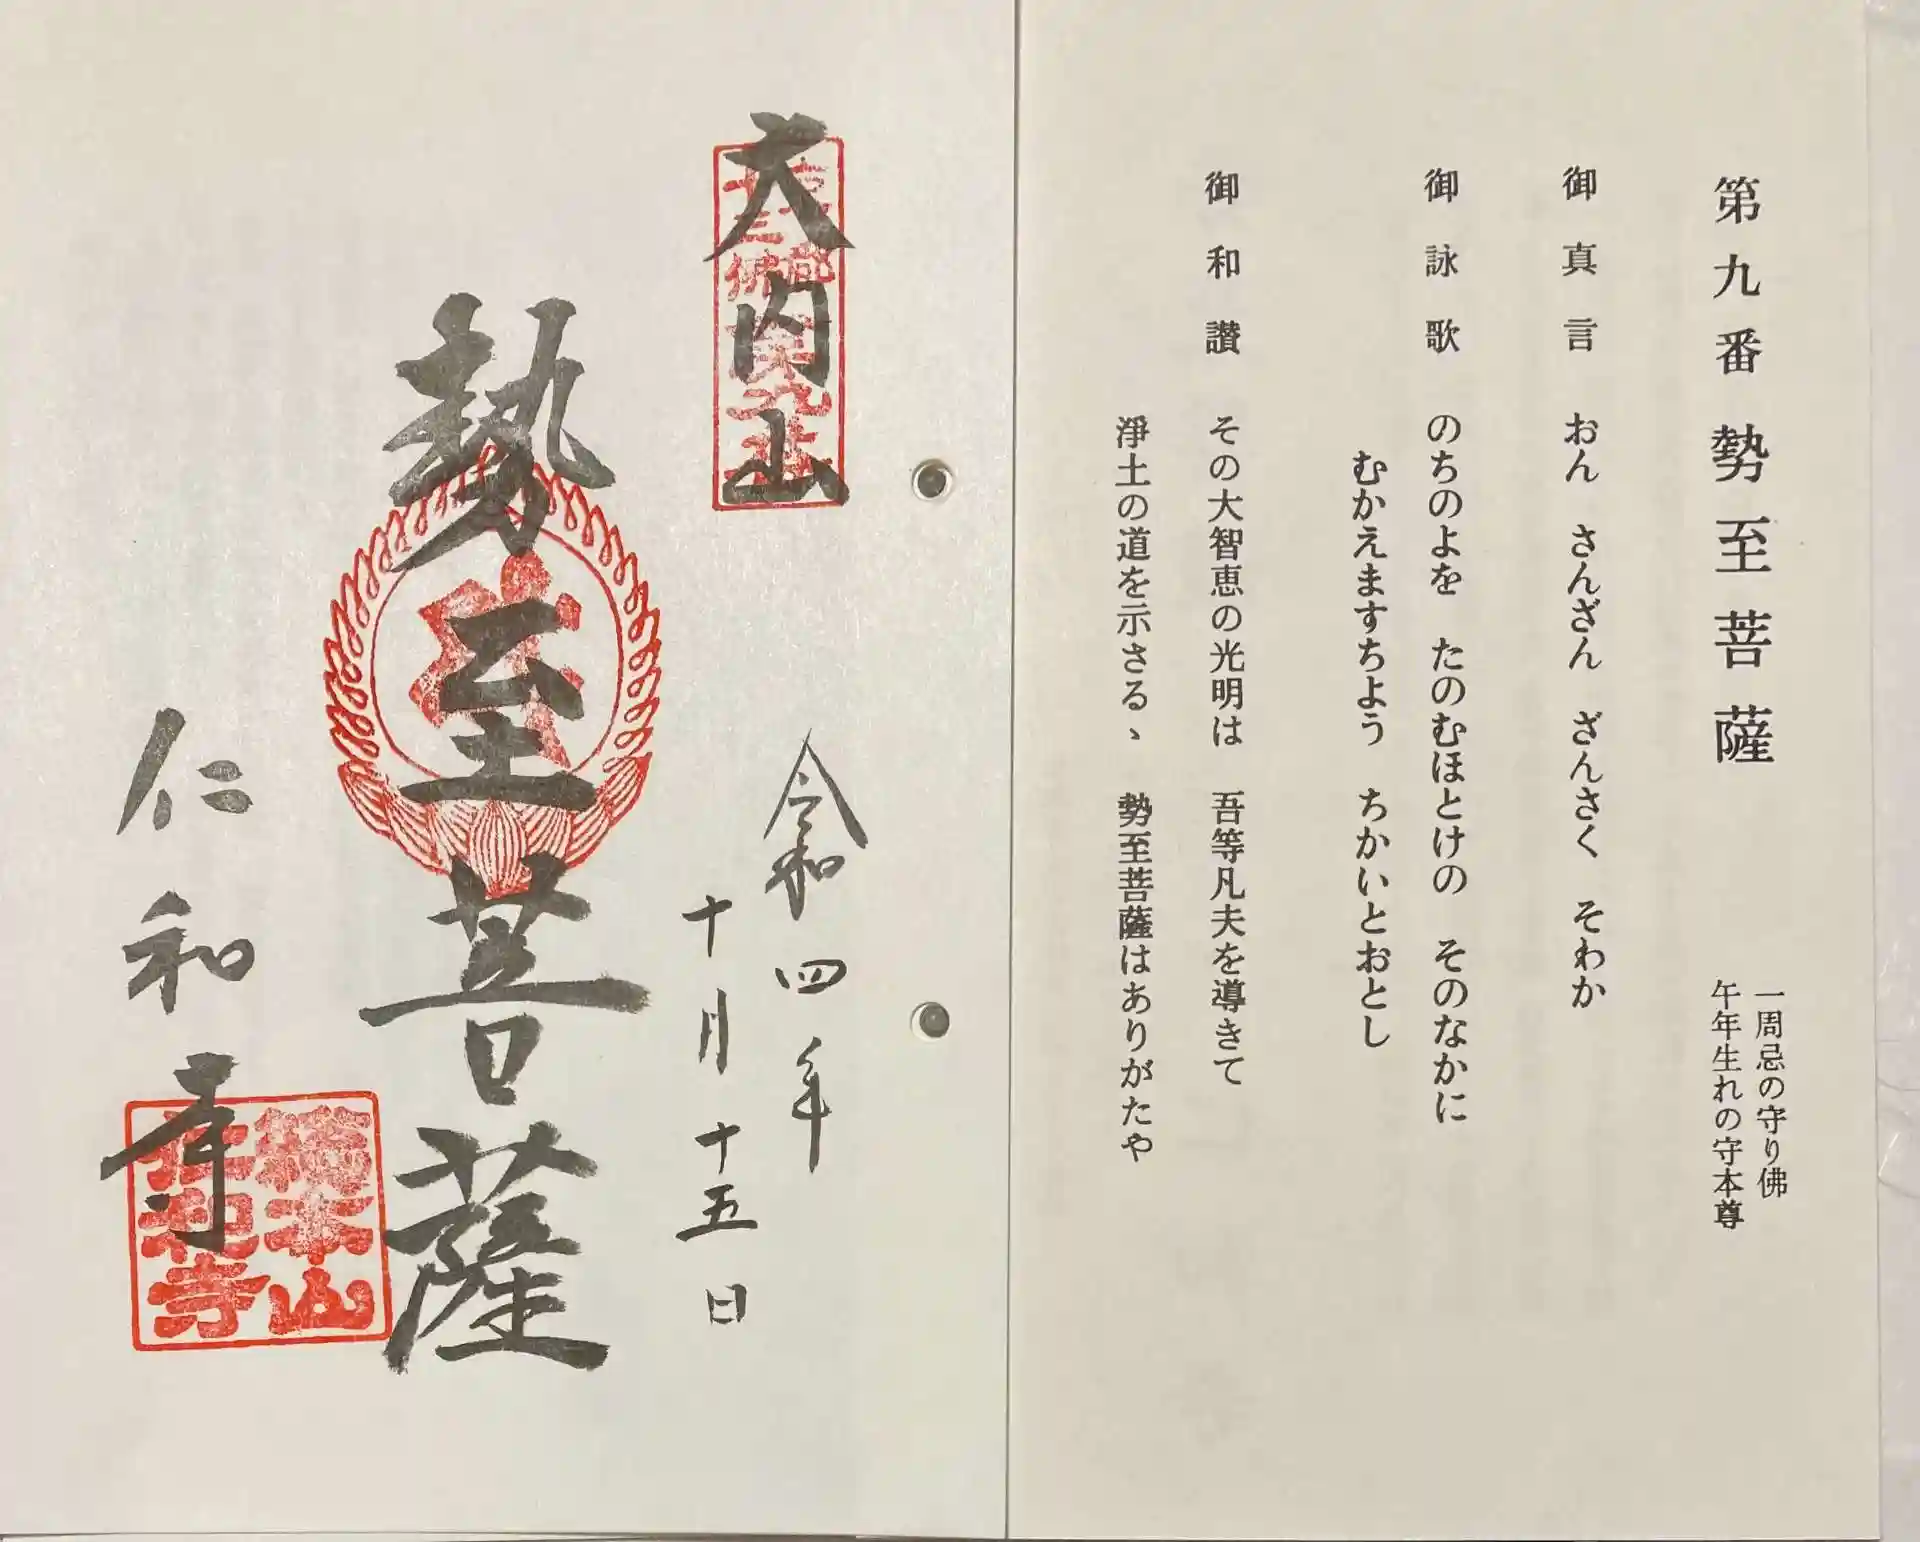 第九番 勢至菩薩
一周忌の守り佛
午年生れの守本尊
御真言 おん さんざん ざんさく そわか
御詠歌 のちのよを たのむほとけの そのなかに
むかえますちよう ちかいとおとし
御和讃 その大智恵の光明は 吾等凡夫を導きて
淨土の道を示さるゝ 勢至菩薩はありがたや
大内山
京都
十三佛
第九番
令和四年
十月十五日
勢至菩薩
仁和寺
総本山
仁和寺